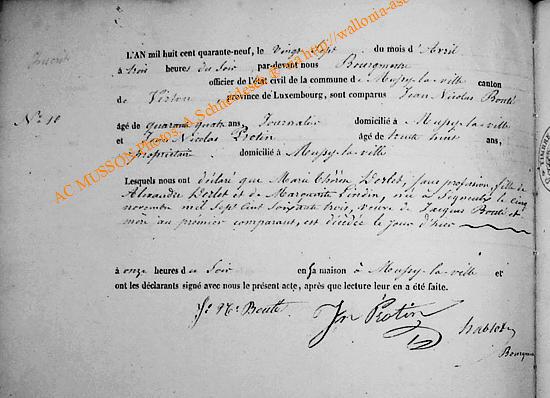 L'AN mil huit cent quarante-neuf, le Vingt Sept du mois d'Avril
à trois heures du Soir par-devant nous Bourgmestre
officier de l'état civil de la commune de Mussy-la-ville canton
de Virton province de Luxembourg, sont comparus Jean Nicolas Bouté
N° 10
âgé de quarante quatre ans, Journalier domicilié à Mussy-la-ville
et Jean Nicolas Protin âgé de trente huit ans,
propriétaire domicilié à Mussy-la-ville
Lesquels nous ont déclaré que Marie Thérèse sans profession, fille de
Alexandre et de Marguerite née à le cinq
novembre mil sept cent soixante trois, veuve de Jacques Bouté et
mère au premier comparant, est décédée le jour d'hier
à onze heures du Soir en sa maison à Mussy-la-ville et
ont les déclarants signé avec nous le présent acte, après que lecture leur en a été faite.
J. Ns. Bouté
Jn Protin
Bourgm
AC MUSSON Photos. A Schneidesch R via http://wallonia-asso
TIMBRE